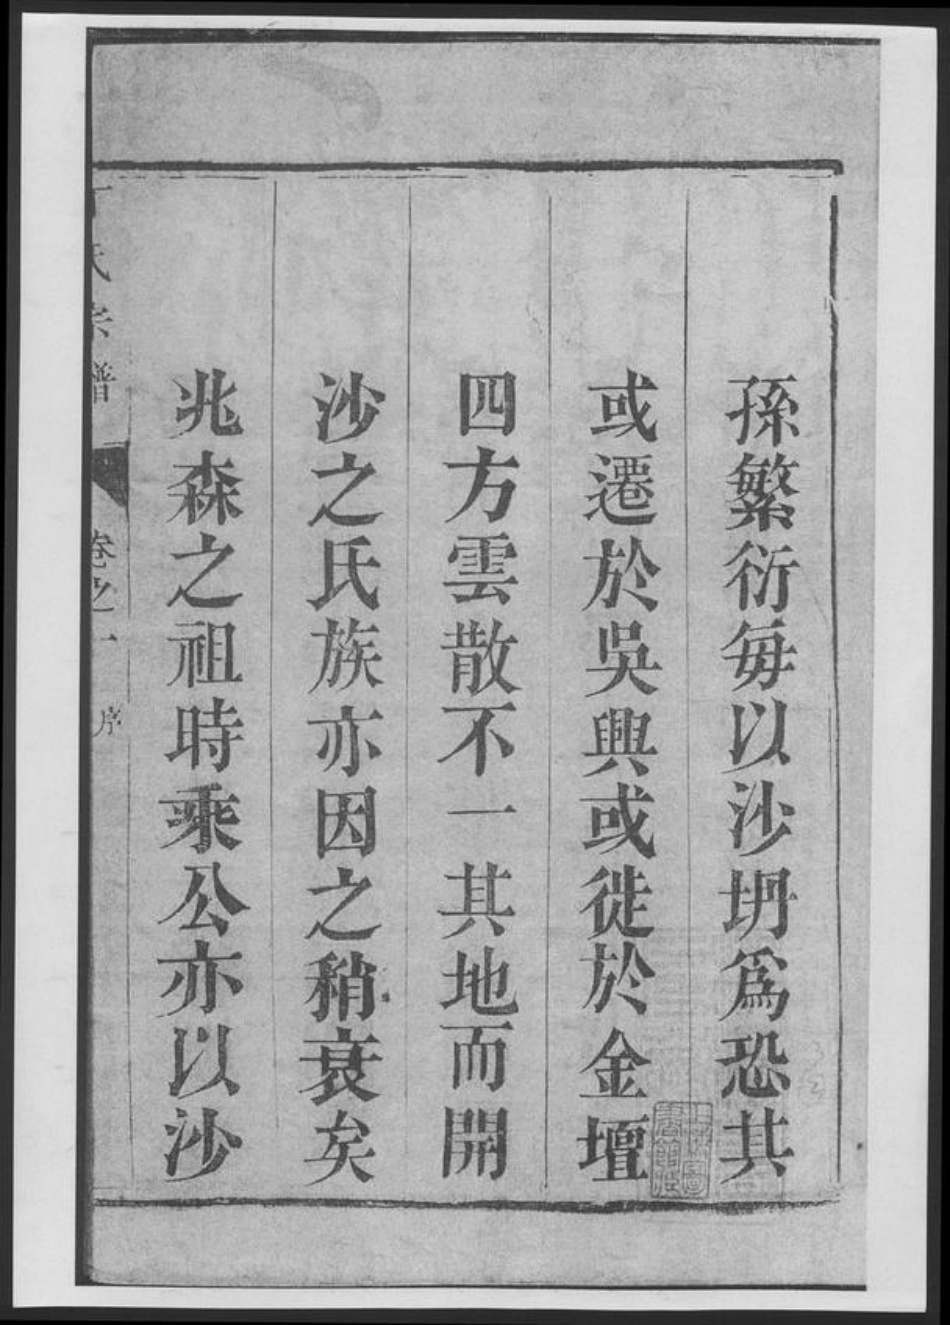 孫繁衍每以沙坍爲恐其
或遷於吳興或徙於金壇
四方雲散不一其地而開
沙之氏族亦因之稍衰矣
兆森之祖時乘公亦以沙
氏宗譜 卷之一 序